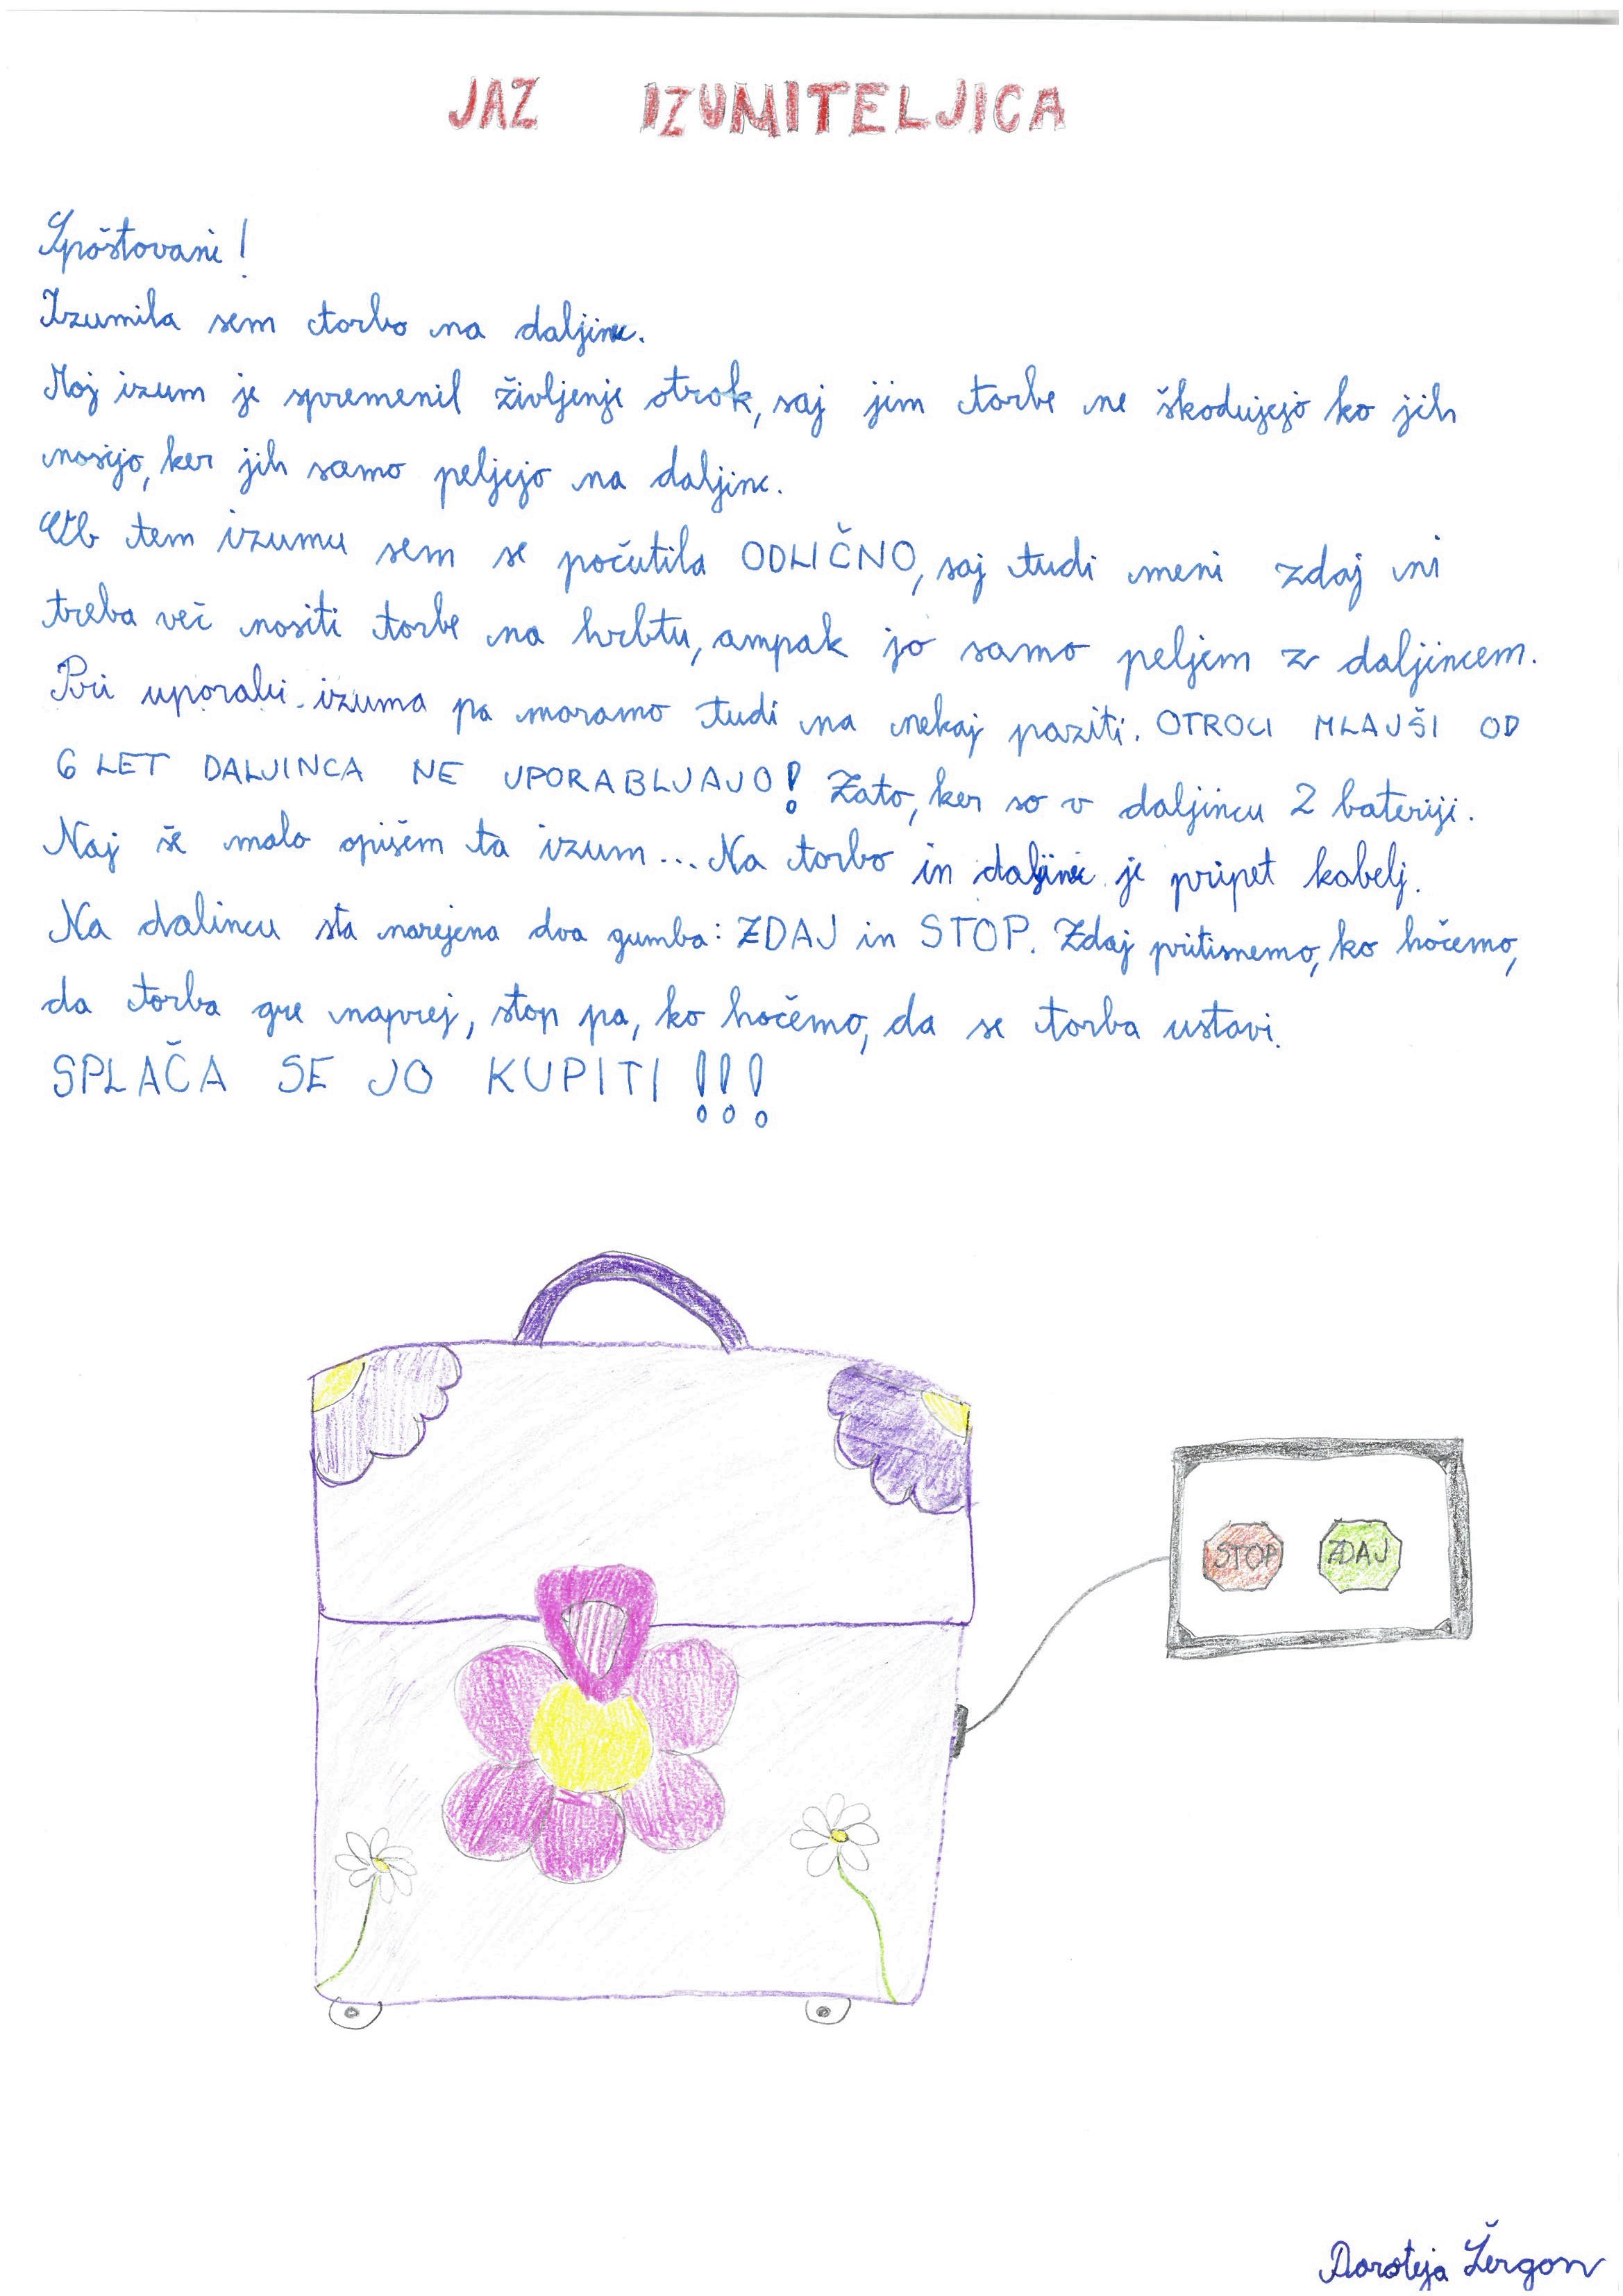 JAZ IZUMITELJICA
Spoštovani!
Izumila sem torbo na daljinc.
Moj izum je spremenil življenje otrok, saj jim torbe ne škodujejo ko jih
nosijo, ker jih samo peljejo na daljinc.
Ob tem izumu sem se počutila ODLIČNO, saj tudi meni zdaj ni
treba več nositi torbe na hrbtu, ampak jo samo peljem z daljincem.
Pri uporabi izuma pa moramo tudi na nekaj paziti. OTROCI MLAJŠI OD
6 LET DALJINCA NE UPORABLJAJO! Zato, ker so v daljincu 2 bateriji.
Naj še malo opišem ta izum... Na torbo in daljinc je pripet kabelj.
Na dalincu sta narejena dva gumba: ZDAJ in STOP. Zdaj pritisnemo, ko hočemo,
da torba gre naprej, stop pa, ko hočemo, da se torba ustavi.
SPLAČA SE JO KUPITI!!!
STOP ZDAJ
Doroteja Žergon